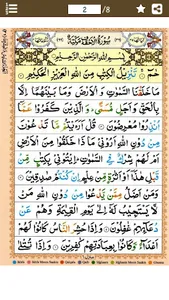 2 /8
سُوْرَةُ الْاَحْقَافِ مَكِّيَّةٌ
بِسْمِ اللّٰهِ الرَّحْمٰنِ الرَّحِيْمِ
حٰمٓ ۚ تَنْزِيْلُ الْكِتٰبِ مِنَ اللّٰهِ الْعَزِيْزِ الْحَكِيْمِ
مَا خَلَقْنَا السَّمٰوٰتِ وَالْاَرْضَ وَمَا بَيْنَهُمَاۤ اِلَّا
بِالْحَقِّ وَاَجَلٍ مُّسَمًّى ؕ وَالَّذِيْنَ كَفَرُوْا عَمَّاۤ
اُنْذِرُوْا مُعْرِضُوْنَ قُلْ اَرَءَيْتُمْ مَّا تَدْعُوْنَ مِنْ
دُوْنِ اللّٰهِ اَرُوْنِيْ مَاذَا خَلَقُوْا مِنَ الْاَرْضِ
اَمْ لَهُمْ شِرْكٌ فِي السَّمٰوٰتِ ؕ اِيْتُوْنِيْ بِكِتٰبٍ مِّنْ قَبْلِ
هٰذَاۤ اَوْ اَثٰرَةٍ مِّنْ عِلْمٍ اِنْ كُنْتُمْ صٰدِقِيْنَ
وَمَنْ اَضَلُّ مِمَّنْ يَّدْعُوْا مِنْ دُوْنِ اللّٰهِ مَنْ
لَّا يَسْتَجِيْبُ لَهٗۤ اِلٰى يَوْمِ الْقِيٰمَةِ وَهُمْ عَنْ
دُعَآئِهِمْ غٰفِلُوْنَ وَاِذَا حُشِرَ النَّاسُ كَانُوْا لَهُمْ
اَعْدَآءً وَّكَانُوْا بِعِبَادَتِهِمْ كٰفِرِيْنَ وَاِذَا تُتْلٰى